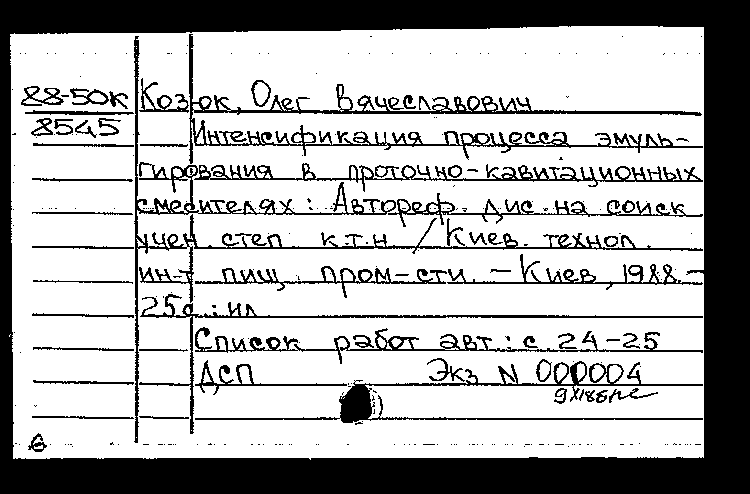 88-50к Козок, Олег Вячеславович
8545 Интенсификация процесса эмуль-
гирования в проточно-кавитационных
смесителях: Автореф. дис. на соиск
учен. степ. к.т.н. / Киев. технол.
ин-т пищ. пром-сти. - Киев, 1988.-
25с.: ил
Список работ авт.: с. 24-25
ДСП Экз N 000004